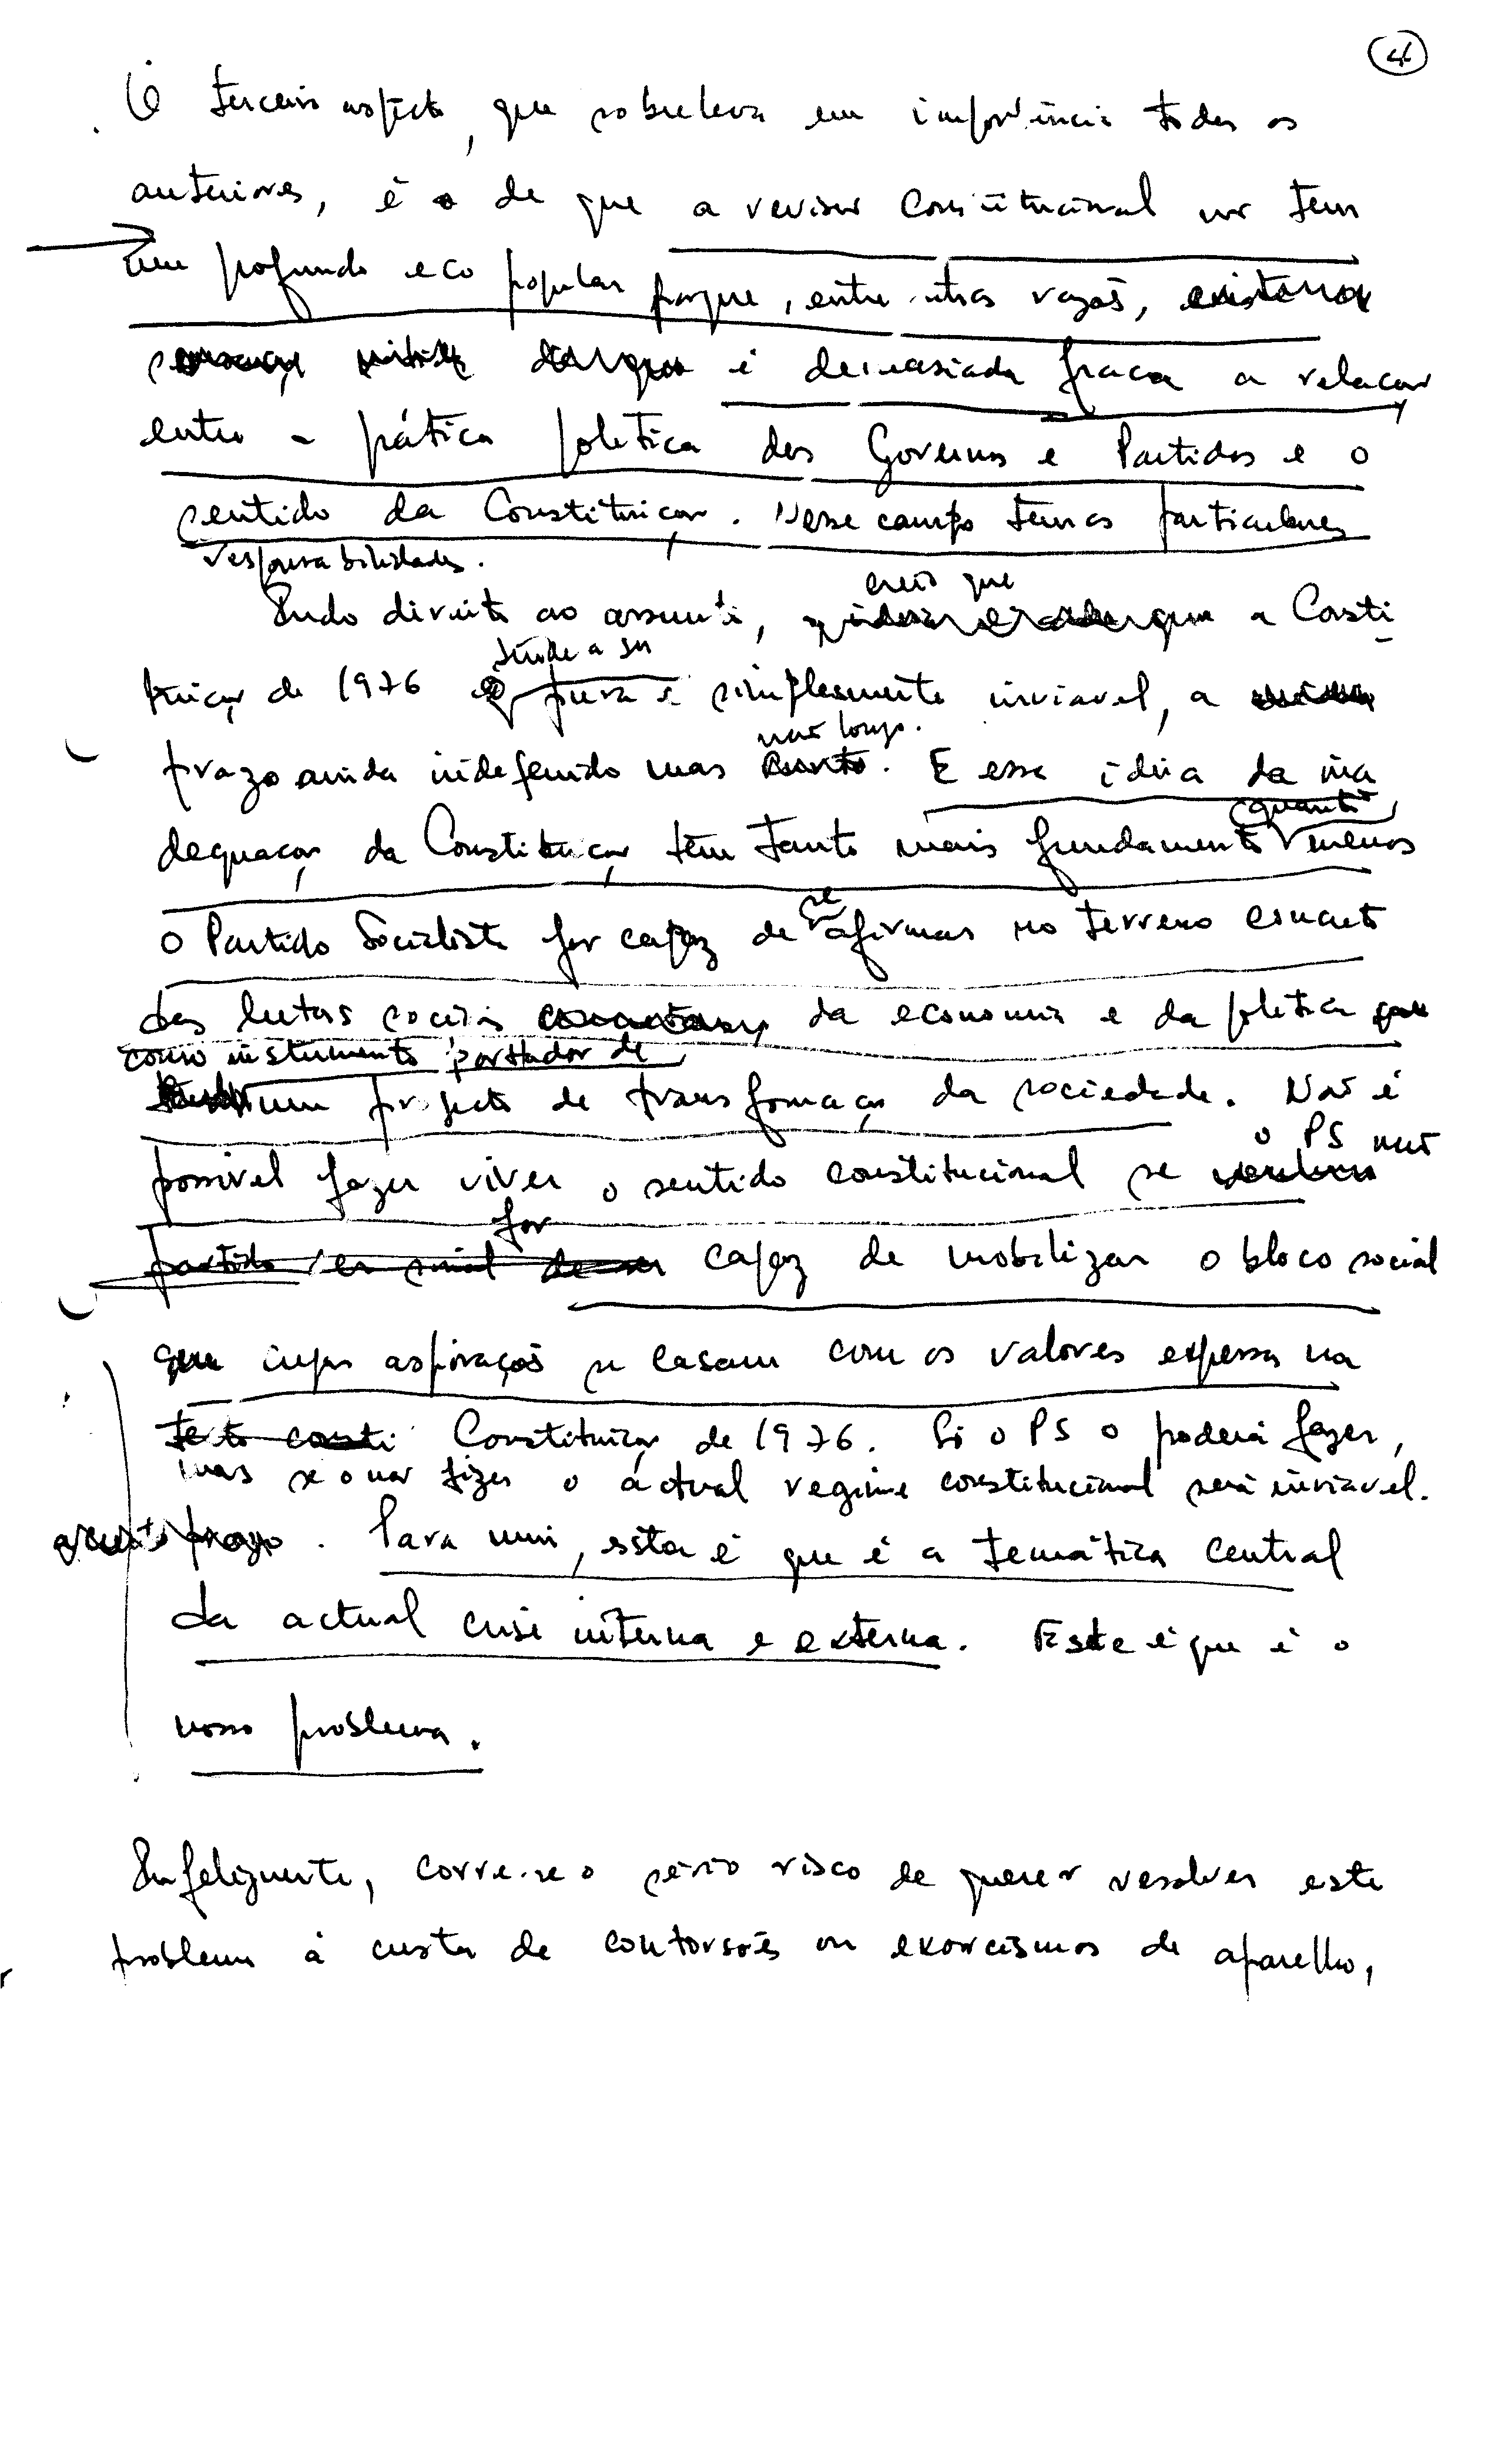 4
O terceiro aspecto, que sobreleva em importância todos os
anteriores, é o de que a revisão constitucional não tem
um profundo eco popular porque, entre outras razões,
é demasiada fraca a relação
entre a prática política dos Governos e Partidos e o
sentido da Constituição. Nesse campo temos particulares
responsabilidades.
creio que
Indo direito ao assunto, a Consti
tende a ser
tuição de 1976 pura e simplesmente inviável, a
não longo.
prazo ainda indefenido mas curto. E essa ideia da ina
quanto
dequação da Constituição tem tanto mais fundamento menos
se
o Partido Socialista for capaz de afirmar no terreno concreto
das lutas sociais da economia e da política que
como instrumento portador de
um projecto de transformação da sociedade. Não é
o PS não
possível fazer viver o sentido constitucional se
for
partido capaz de mobilizar o bloco social
que cujas aspirações se casam com os valores expressos na
texto consti Constituição de 1976. Só o PS o poderá fazer,
mas se o não fizer o actual regime constitucional será inviável.
a curto prazo. Para mim, esta é que é a temática central
da actual crise interna e externa. Este é que é o
nosso problema.
Infelizmente, corre-se o sério risco de querer resolver este
problema à custa de contorsões ou exorcismos de aparelho,